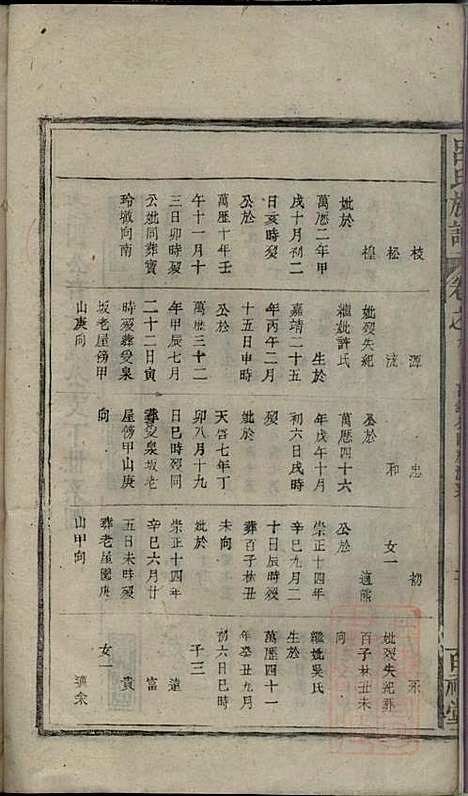 呂氏族譜
卷之
枝
松
楻
妣於
萬歷二年甲
戌十月初二
日亥時歿
公於
萬歷十年壬
午十一月十
三日卯時歿
公妣同葬寶
玲墩向南
源
流
妣歿失紀
繼妣許氏
生於
嘉靖二十五
年丙午二月
十五日申時
公於
萬歷三十二
年甲辰七月
二十二日寅
時歿葬受泉
坂老屋傍甲
山庚向
忠
和
公於
萬歷四十六
年戊午十月
初六日戌時
歿
天啓七年丁
卯八月十九
日巳時歿同
葬受泉坂老
屋傍甲山庚
向
初
女一
適熊
公於
崇正十四年
辛巳九月二
十日辰時歿
葬百子林丑
未向
妣於
崇正十四年
辛巳六月廿
五日未時歿
葬老屋園庚
山甲向
永
妣歿失紀葬
百子林丑未
向
繼妣吳氏
生於
萬歷四十一
年癸丑九月
初六日巳時
子三
遠
富
貴
女一
適余